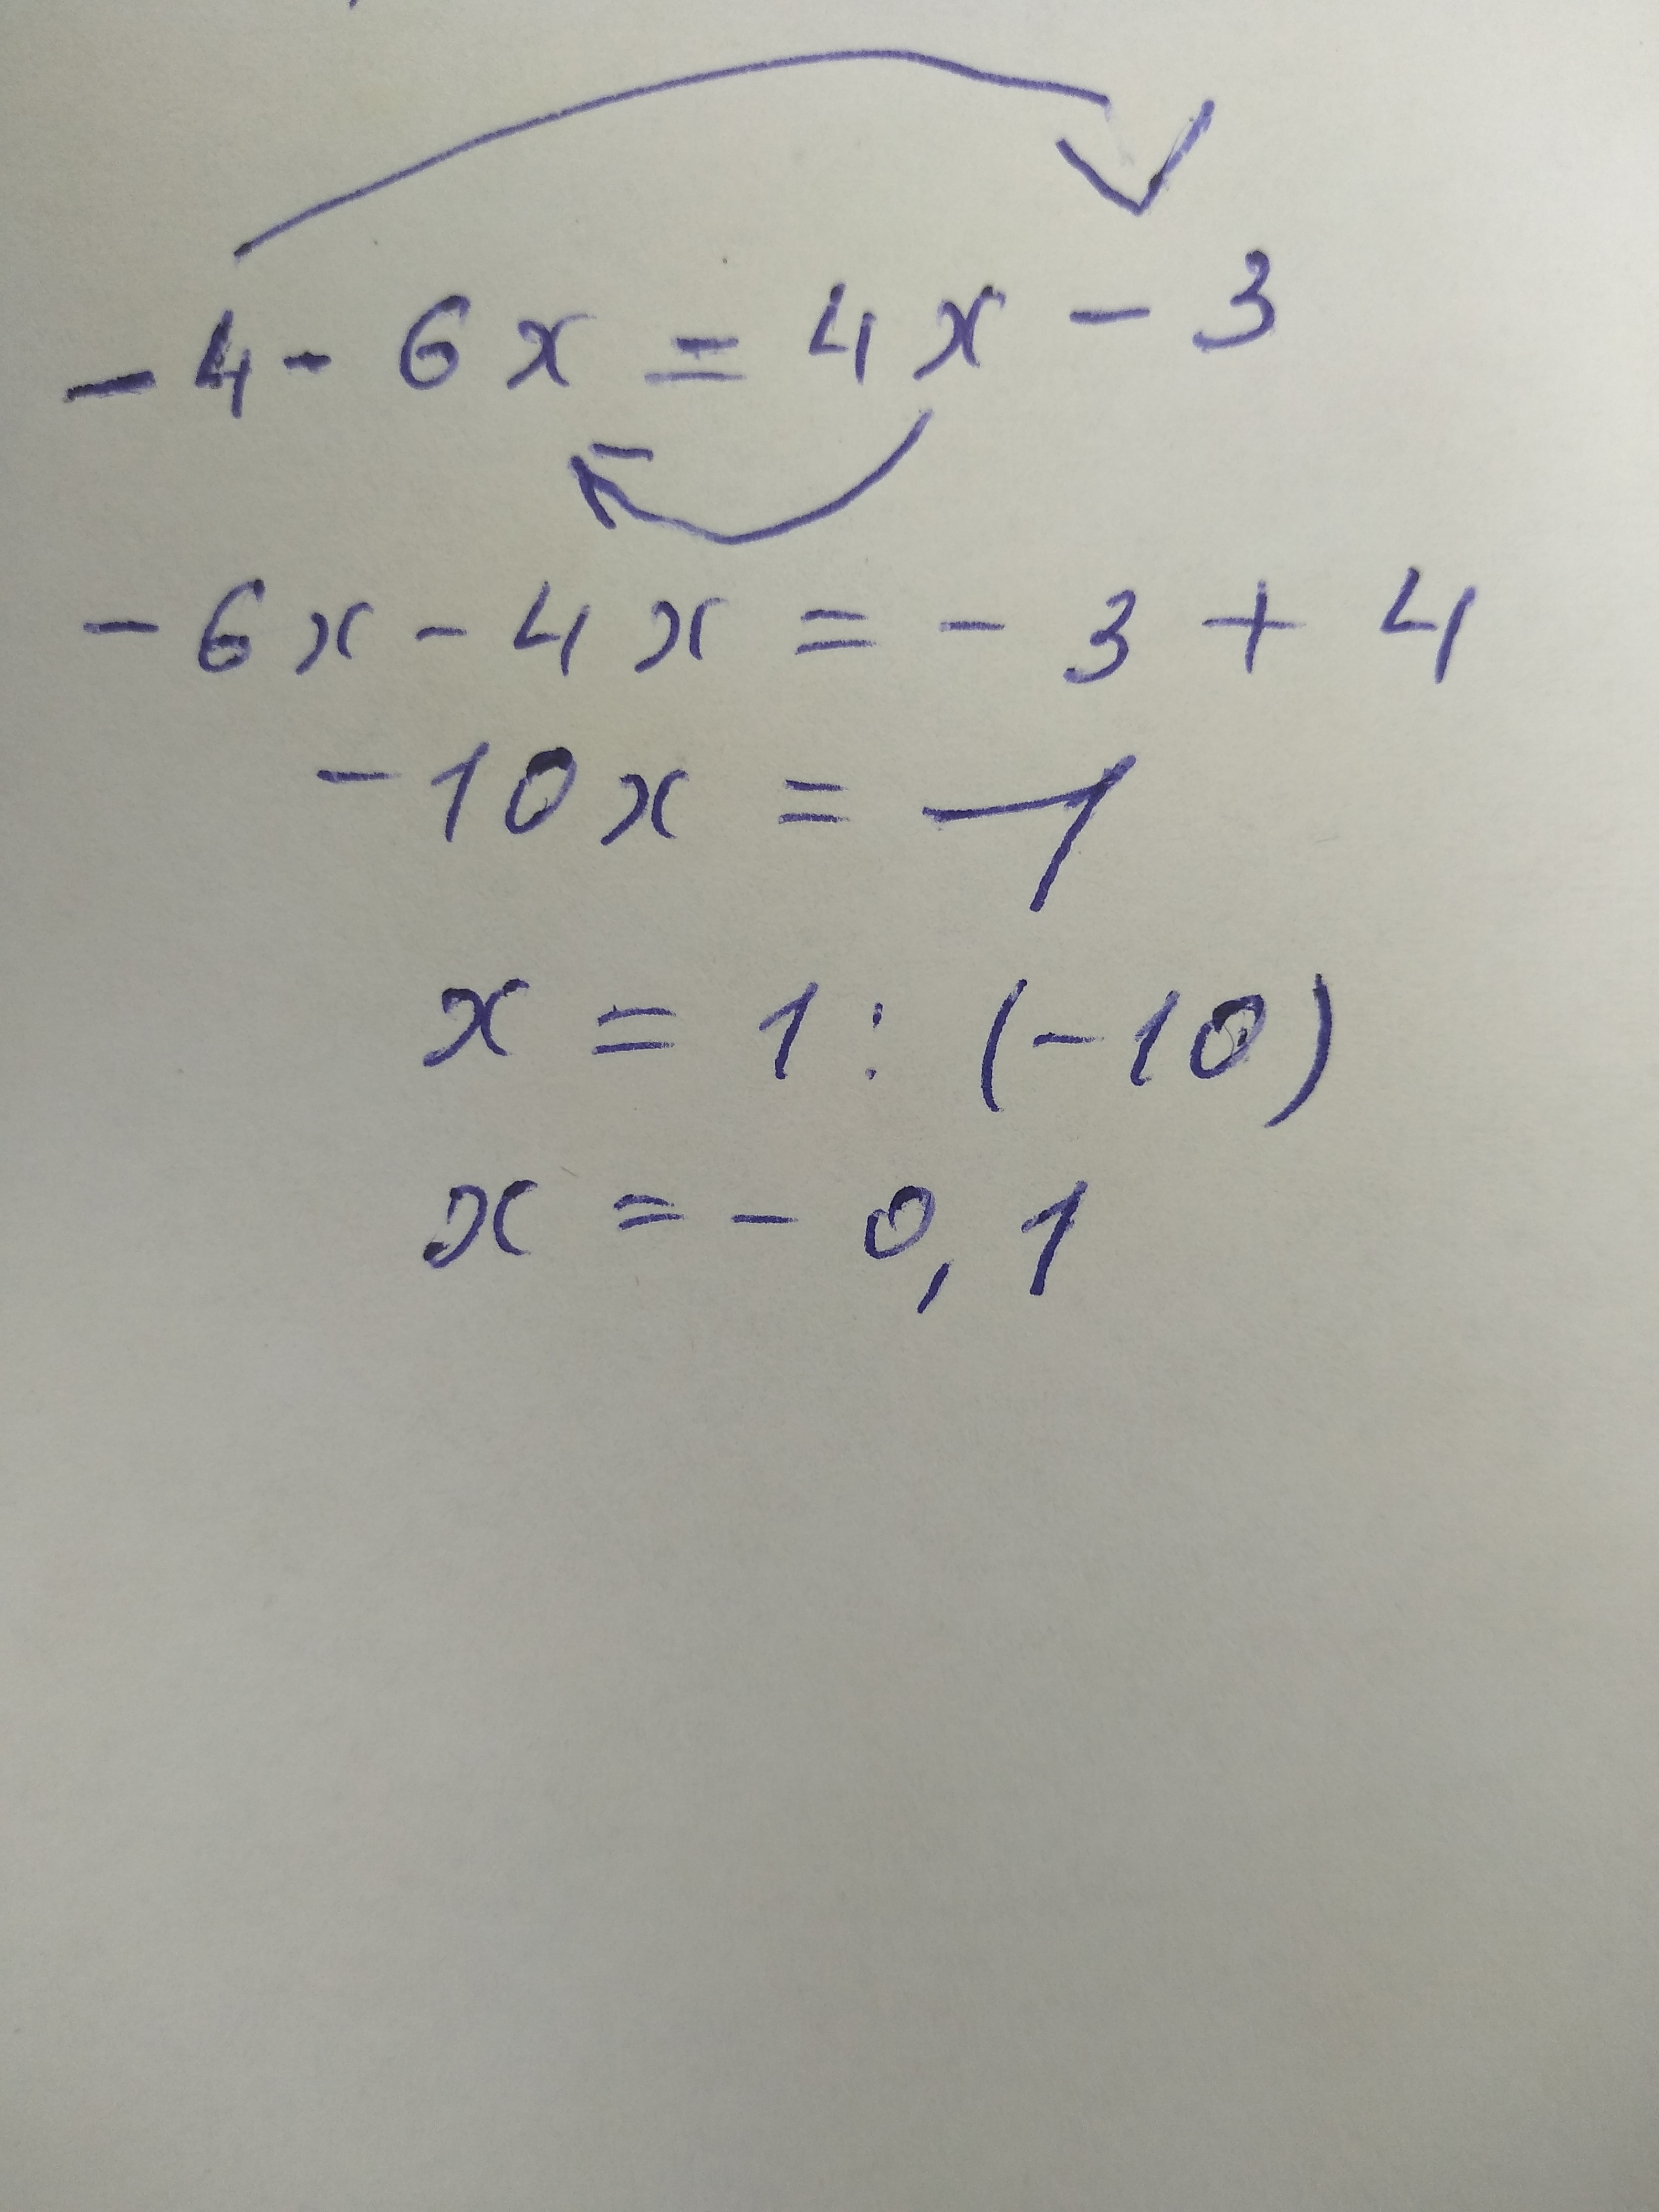 -4 - 6x = 4x - 3
-6x - 4x = -3 + 4
-10x = 1
x = 1 : (-10)
x = -0,1